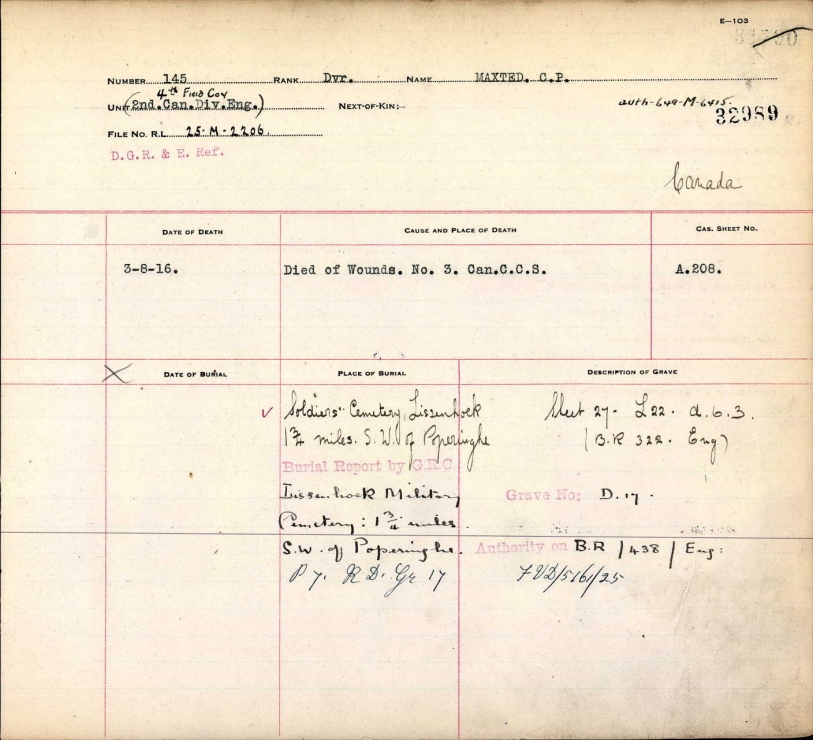 E—103
NUMBER 145 RANK Dvr. NAME MAXTED. C.P.
4th Field Coy
UNIT (2nd.Can.Div.Eng.) NEXT-OF-KIN:— auth-649-M-6415.
32989
FILE NO. R.L. 25-M-2206.
D.G.R. & E. Ref.
Canada
DATE OF DEATH CAUSE AND PLACE OF DEATH CAS. SHEET NO.
3-8-16. Died of Wounds. No. 3. Can.C.C.S. A.208.
DATE OF BURIAL PLACE OF BURIAL DESCRIPTION OF GRAVE
Soldiers' Cemetery, Lissenhoek Sheet 27- L22. d.6.3.
1¾ miles. S.W. of Poperinghe (B.R 322. Eng)
Burial Report by G.R.C.
Lissenhoek Military Grave No: D.17.
Cemetery: 1¾ miles.
S.W. of Poperinghe. Authority on B.R /438/ Eng:
P 7. R D. Gr 17